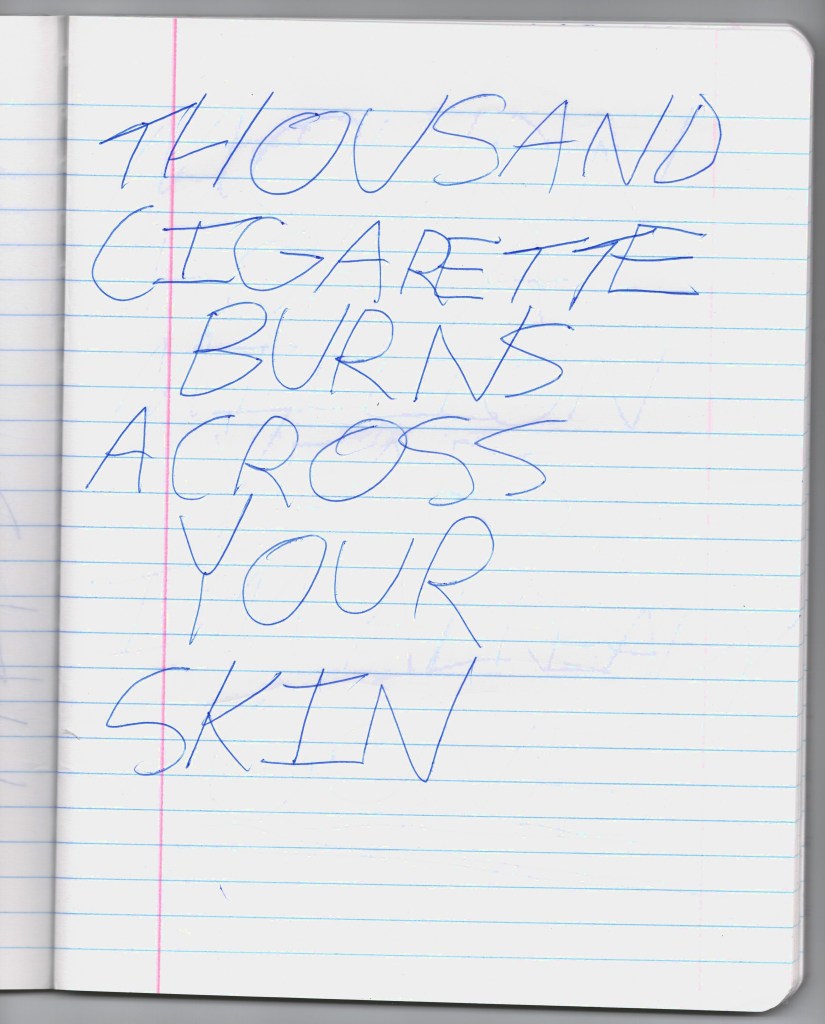 THOUSAND
CIGARETTE
BURNS
ACROSS
YOUR
SKIN